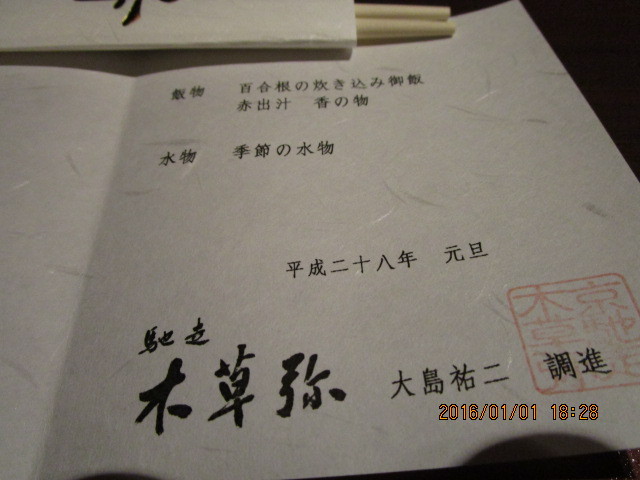 飯物 百合根の炊き込み御飯
赤出汁 香の物
水物 季節の水物
平成二十八年 元旦
馳走
木草弥 大島祐二 調進
2016/01/01 18:28